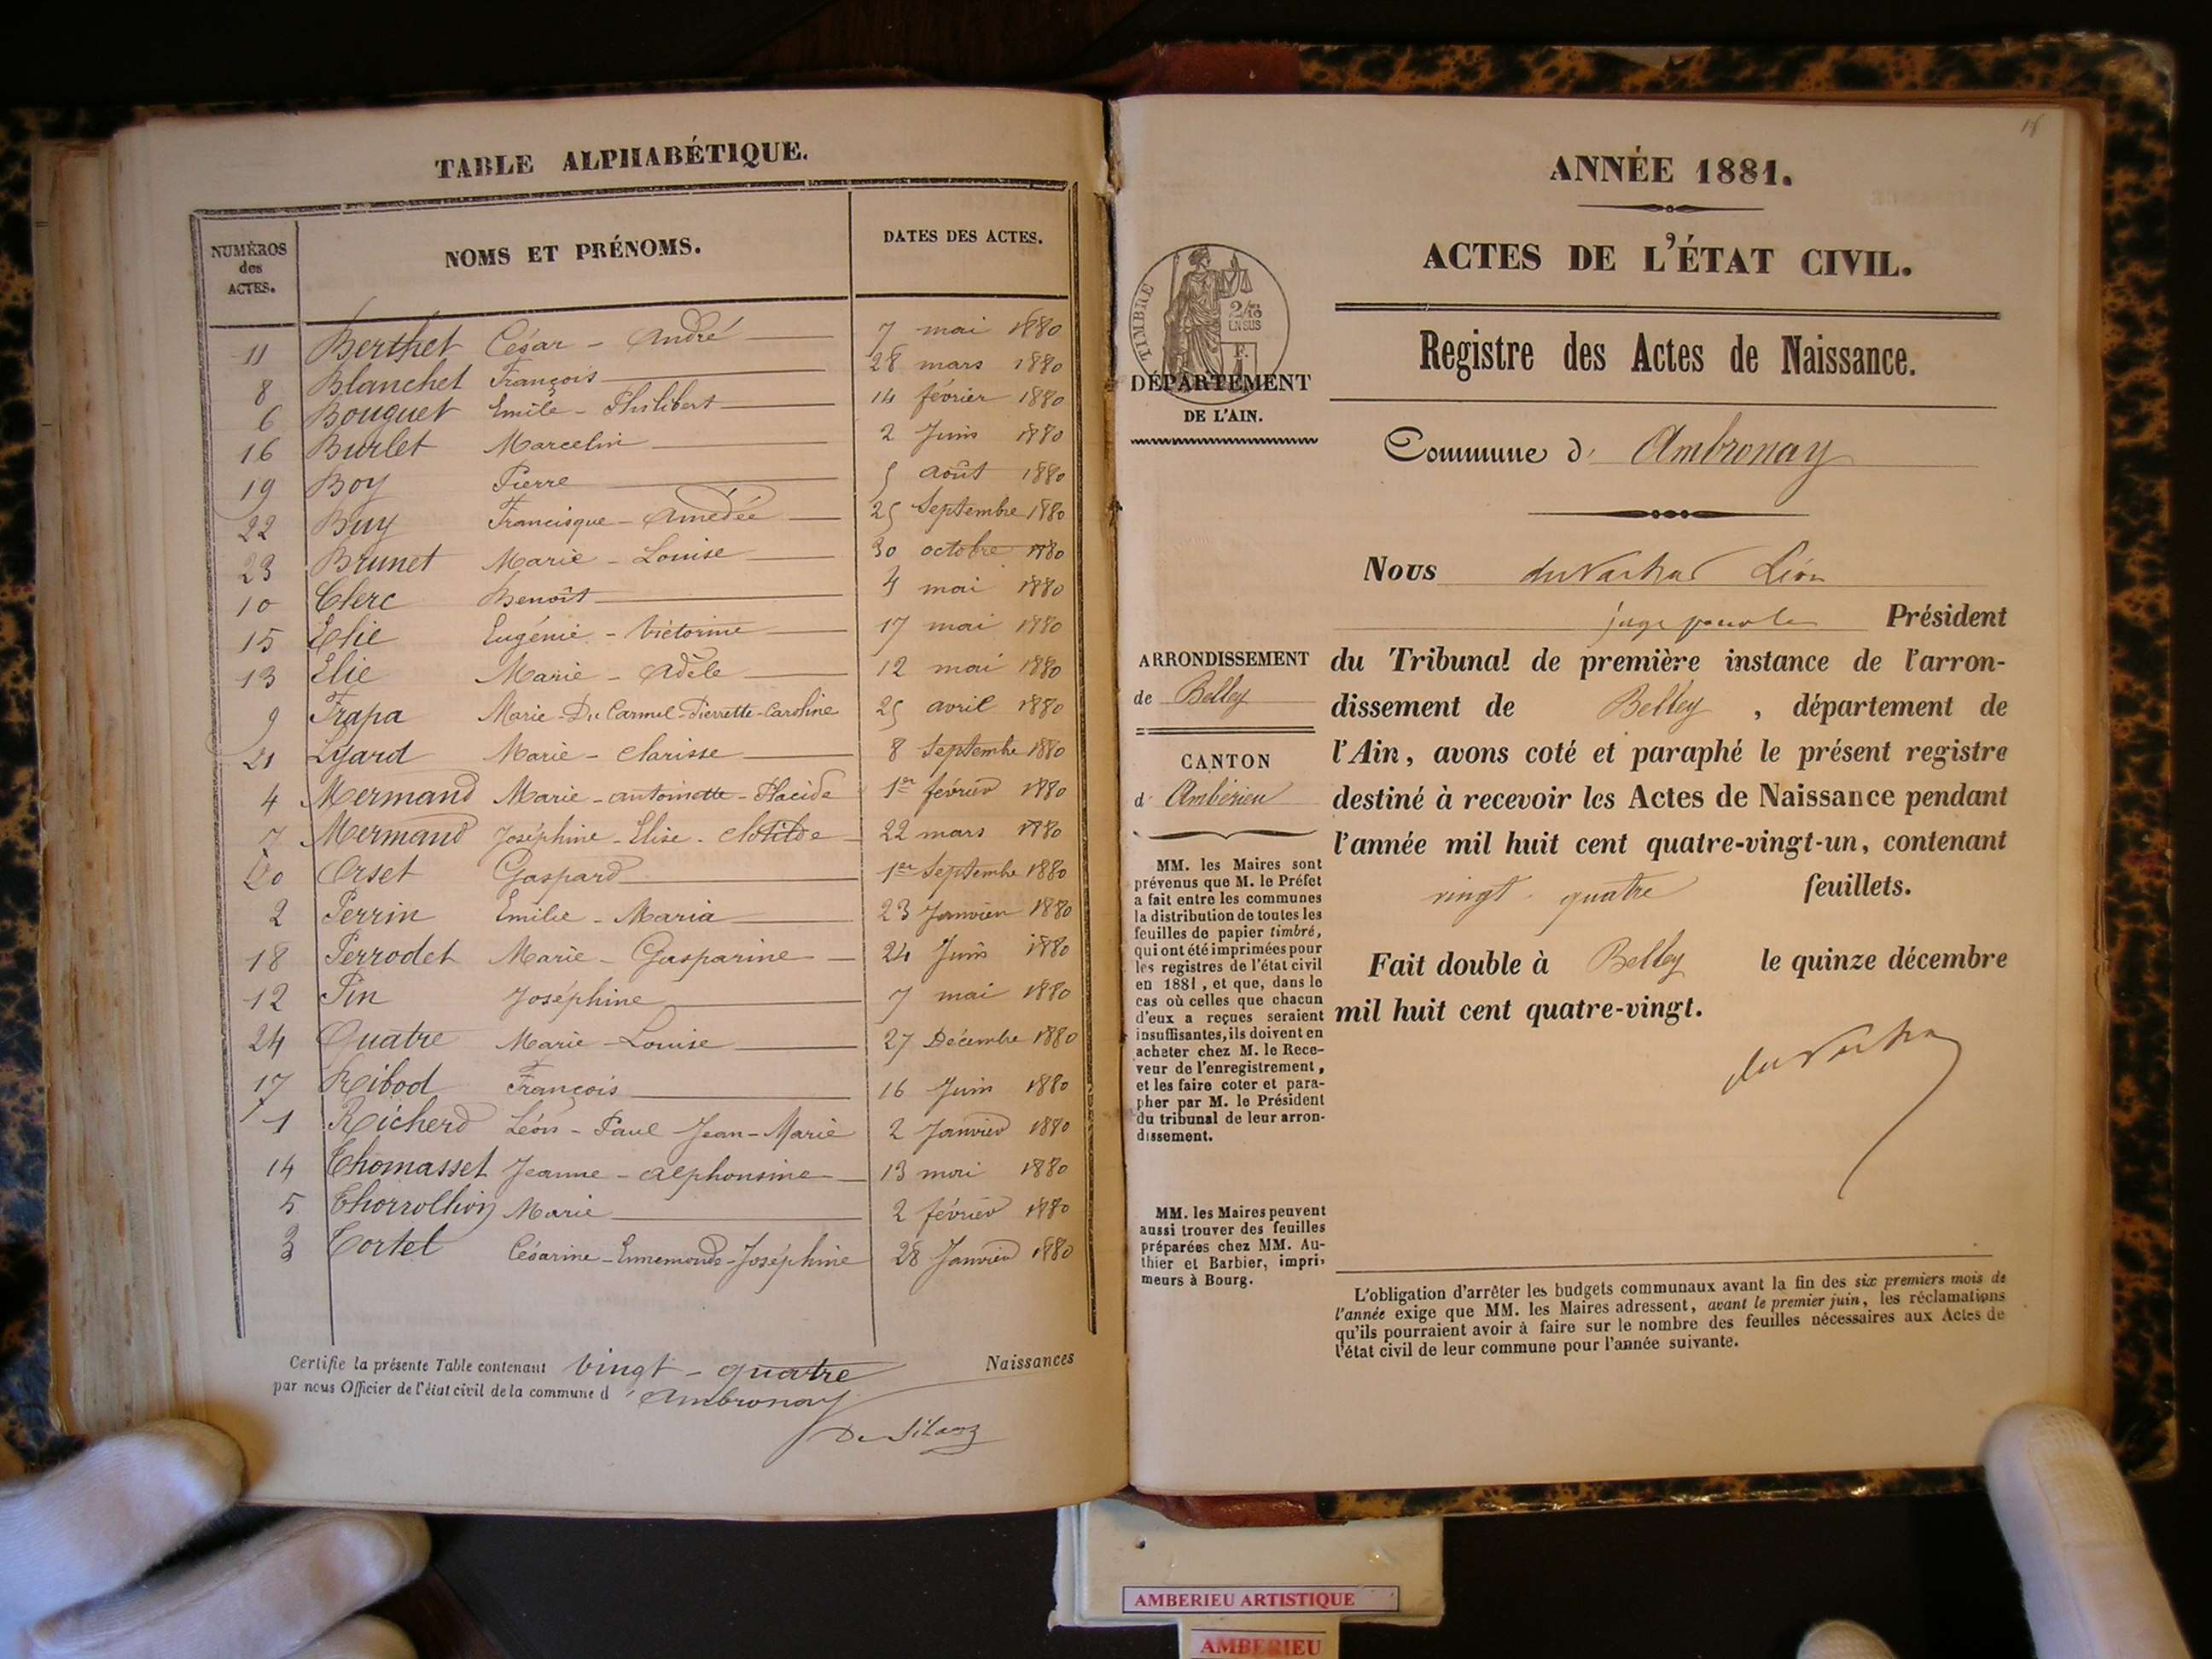 TABLE ALPHABÉTIQUE.
NUMÉROS des ACTES.
NOMS ET PRÉNOMS.
DATES DES ACTES.
11 Berthet César - André 7 mai 1880
8 Blanchet François 28 mars 1880
6 Bouguet Emile - Philibert 14 février 1880
16 Burlet Marcelin 2 Juin 1880
19 Boy Pierre 5 août 1880
22 Buy Francisque - Amédée 25 Septembre 1880
23 Brunet Marie - Louise 30 octobre 1880
10 Clerc Benoît 4 mai 1880
15 Elie Eugénie - Victorine 17 mai 1880
13 Elie Marie - Adèle 12 mai 1880
9 Frapa Marie - Du Carmel - Pierrette - Caroline 25 avril 1880
21 Lyard Marie - Clarisse 8 Septembre 1880
4 Mermand Marie - antoinette - Placide 1er février 1880
7 Mermand Joséphine - Elise - Clotilde 22 mars 1880
20 Orset Gaspard 1er Septembre 1880
2 Perrin Emilie - Maria 23 Janvier 1880
18 Perrodet Marie - Gasparine 24 Juin 1880
12 Pin Joséphine 7 mai 1880
24 Quatre Marie - Louise 27 Décembre 1880
17 Ribod François 16 Juin 1880
1 Richerd Léon - Paul Jean - Marie 2 Janvier 1880
14 Thomasset Jeanne - alphonsine 13 mai 1880
5 Thorrolhion Marie 2 février 1880
3 Tortel Césarine - Ennemonde - Joséphine 28 Janvier 1880
Certifie la présente Table contenant vingt - quatre Naissances
par nous Officier de l'état civil de la commune d'Ambronay
ANNÉE 1881.
ACTES DE L'ÉTAT CIVIL.
TIMBRE
2/10
EN SUS
F.
DÉPARTEMENT
DE L'AIN.
Registre des Actes de Naissance.
Commune d' Ambronay
Nous Léon
juge pour le Président
du Tribunal de première instance de l'arron-
dissement de Belley, département de
l'Ain, avons coté et paraphé le présent registre
destiné à recevoir les Actes de Naissance pendant
l'année mil huit cent quatre-vingt-un, contenant
vingt-quatre feuillets.
Fait double à Belley le quinze décembre
mil huit cent quatre-vingt.
ARRONDISSEMENT
de Belley
CANTON
d' Ambérieu
MM. les Maires sont
prévenus que M. le Préfet
a fait entre les communes
la distribution de toutes les
feuilles de papier timbré,
qui ont été imprimées pour
les registres de l'état civil
en 1881, et que, dans le
cas où celles que chacun
d'eux a reçues seraient
insuffisantes, ils doivent en
acheter chez M. le Rece-
veur de l'enregistrement,
et les faire coter et para-
pher par M. le Président
du tribunal de leur arron-
dissement.
MM. les Maires peuvent
aussi trouver des feuilles
préparées chez MM. Au-
thier et Barbier, impri-
meurs à Bourg.
L'obligation d'arrêter les budgets communaux avant la fin des six premiers mois de
l'année exige que MM. les Maires adressent, avant le premier juin, les réclamations
qu'ils pourraient avoir à faire sur le nombre des feuilles nécessaires aux Actes de
l'état civil de leur commune pour l'année suivante.
AMBERIEU ARTISTIQUE
AMBERIEU